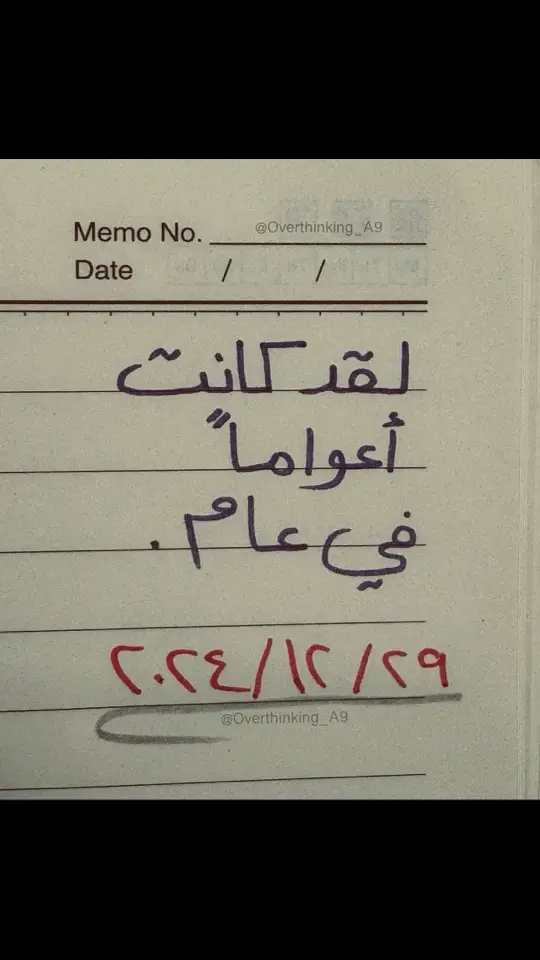 @Overthinking_A9
Memo No.
Date / /
لقد كانت
أعواماً
في عام .
٢٠٢٤/١٢/٢٩
@Overthinking_A9